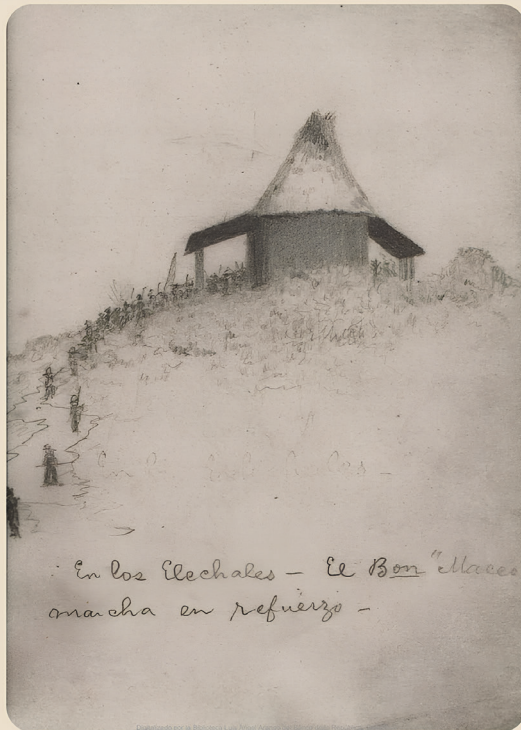 En los Elechales — El Bon "Maceo
marcha en refuerzo —